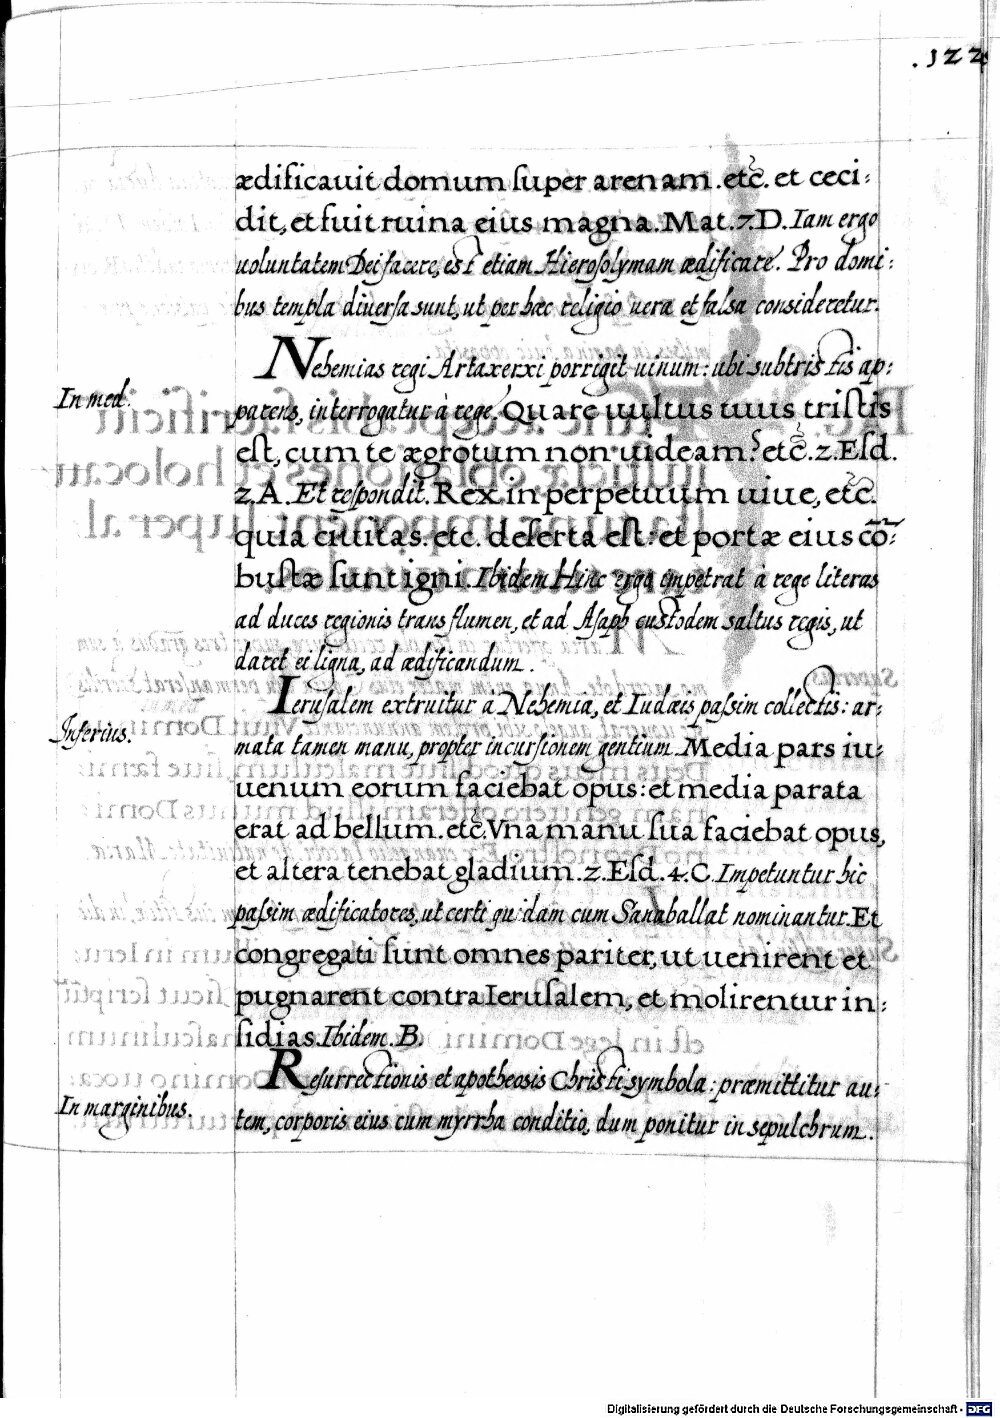 .122
ædificauit domum ſuper arenam.etc̃. et ceci:
dit, et fuit ruina eius magna. Mat.7.D. Iam ergo
uoluntatem Dei facere, est etiam Hieroſolymam ædificare. Pro domi:
bus templa diuerſa sunt, ut per hæc religio uera et falsa consideretur.
Nehemias regi Artaxerxi porrigit uinum: ubi subtristis ap:
In med.
parens, interrogatur à rege, Quare uultus tuus triſtis
eſt, cum te ægrotum non uideam? etc̃. 2. Eſd.
2.A. Et reſpondit. Rex in perpetuum uiue, etc̃.
quia ciuitas. etc. deſerta eſt: et portæ eius cõ:
buſtæ ſunt igni. Ibidem Hinc ergo impetrat à rege literas
ad duces regionis trans flumen, et ad Aſaph custodem saltus regis, ut
daret ei ligna, ad ædificandum.
Ieruſalem extruitur à Nehemia, et Iudæis paſſim collectis: ar:
Inferius.
mata tamen manu, propter incurſionem gentium. Media pars iu:
uenium eorum faciebat opus: et media parata
erat ad bellum. etc̃. Vna manu ſua faciebat opus,
et altera tenebat gladium. 2. Eſd. 4. C. Impetuntur hic
paſſim ædificatores, ut certi quidam cum Sanaballat nominantur. Et
congregati ſunt omnes pariter, ut uenirent et
pugnarent contra Ieruſalem, et molirentur in:
ſidias. Ibidem. B.
Resurrectionis et apotheosis Christi symbola: præmittitur au:
In marginibus.
tem, corporis eius cum myrrha conditio, dum ponitur in sepulchrum.
Digitalisierung gefördert durch die Deutsche Forschungsgemeinschaft - DFG